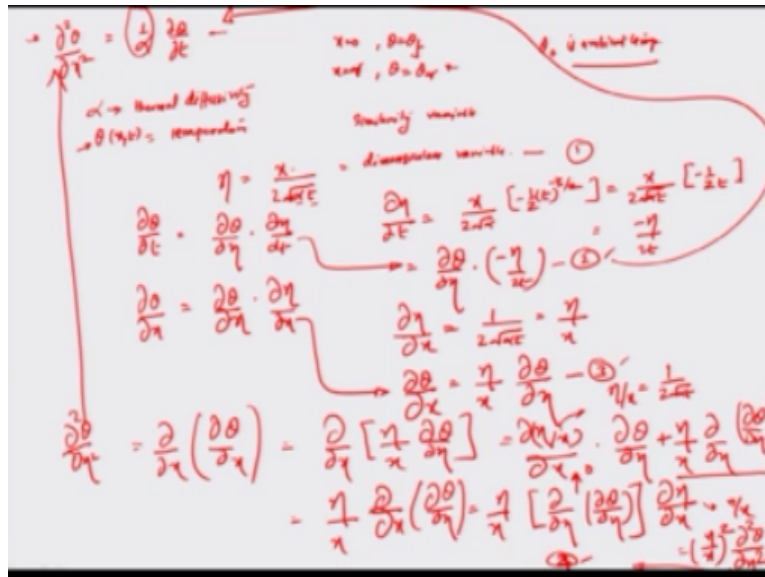 ∂²θ/∂x² = (1/α) ∂θ/∂t
x=0, θ=θ_f
x=∞, θ=θ_∞
θ_∞ is ambient temp
α → thermal diffusivity
→ θ(x,t) = temperature
Similarity variable
η = x/(2√αt) = dimensionless variable — ①
∂θ/∂t = ∂θ/∂η · ∂η/∂t
∂η/∂t = x/(2√α) [-½(t)^(-3/2)] = x/(2√αt) [-1/2t]
= -η/2t
= ∂θ/∂η · (-η/2t) — ②
∂θ/∂x = ∂θ/∂η · ∂η/∂x
∂η/∂x = 1/(2√αt) = η/x
∂θ/∂x = η/x ∂θ/∂η — ③
η/x = 1/(2√αt)
= ∂/∂x (∂θ/∂x) = ∂/∂x [η/x ∂θ/∂η] = ∂(η/x)/∂x · ∂θ/∂η + η/x ∂/∂x (∂θ/∂η
= η/x ∂/∂x (∂θ/∂η) = η/x [∂/∂η (∂θ/∂η)] ∂η/∂x → η/x
= (η/x)² ∂²θ/∂η²